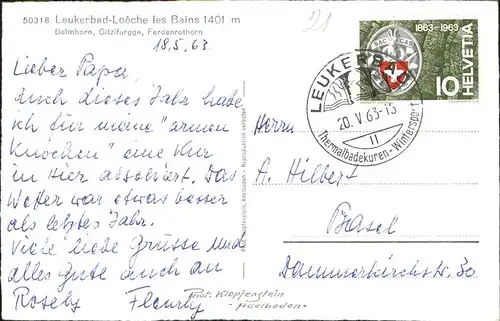 50318 Leukerbad-Loèche les Bains 1401 m
Balmhorn, Gitzifurgge, Ferdenrothorn
21
18.5.63
Lieber Papa,
auch dieses Jahr habe
ich für meine "armen
Knochen" eine Kur
in hier absolviert. Das
Wetter war etwas besser
als letztes Jahr.
Viele liebe Grüsse und
alles Gute auch an
Roseby Fleurly
Phot. Klopfenstein
Adelboden
1863-1963
HELVETIA
10
LEUKERBAD
20. V. 63-13
II
Thermalbadekuren-Wintersport
Herrn
A. Hilbert
Basel
Dammerkirchstr. 30